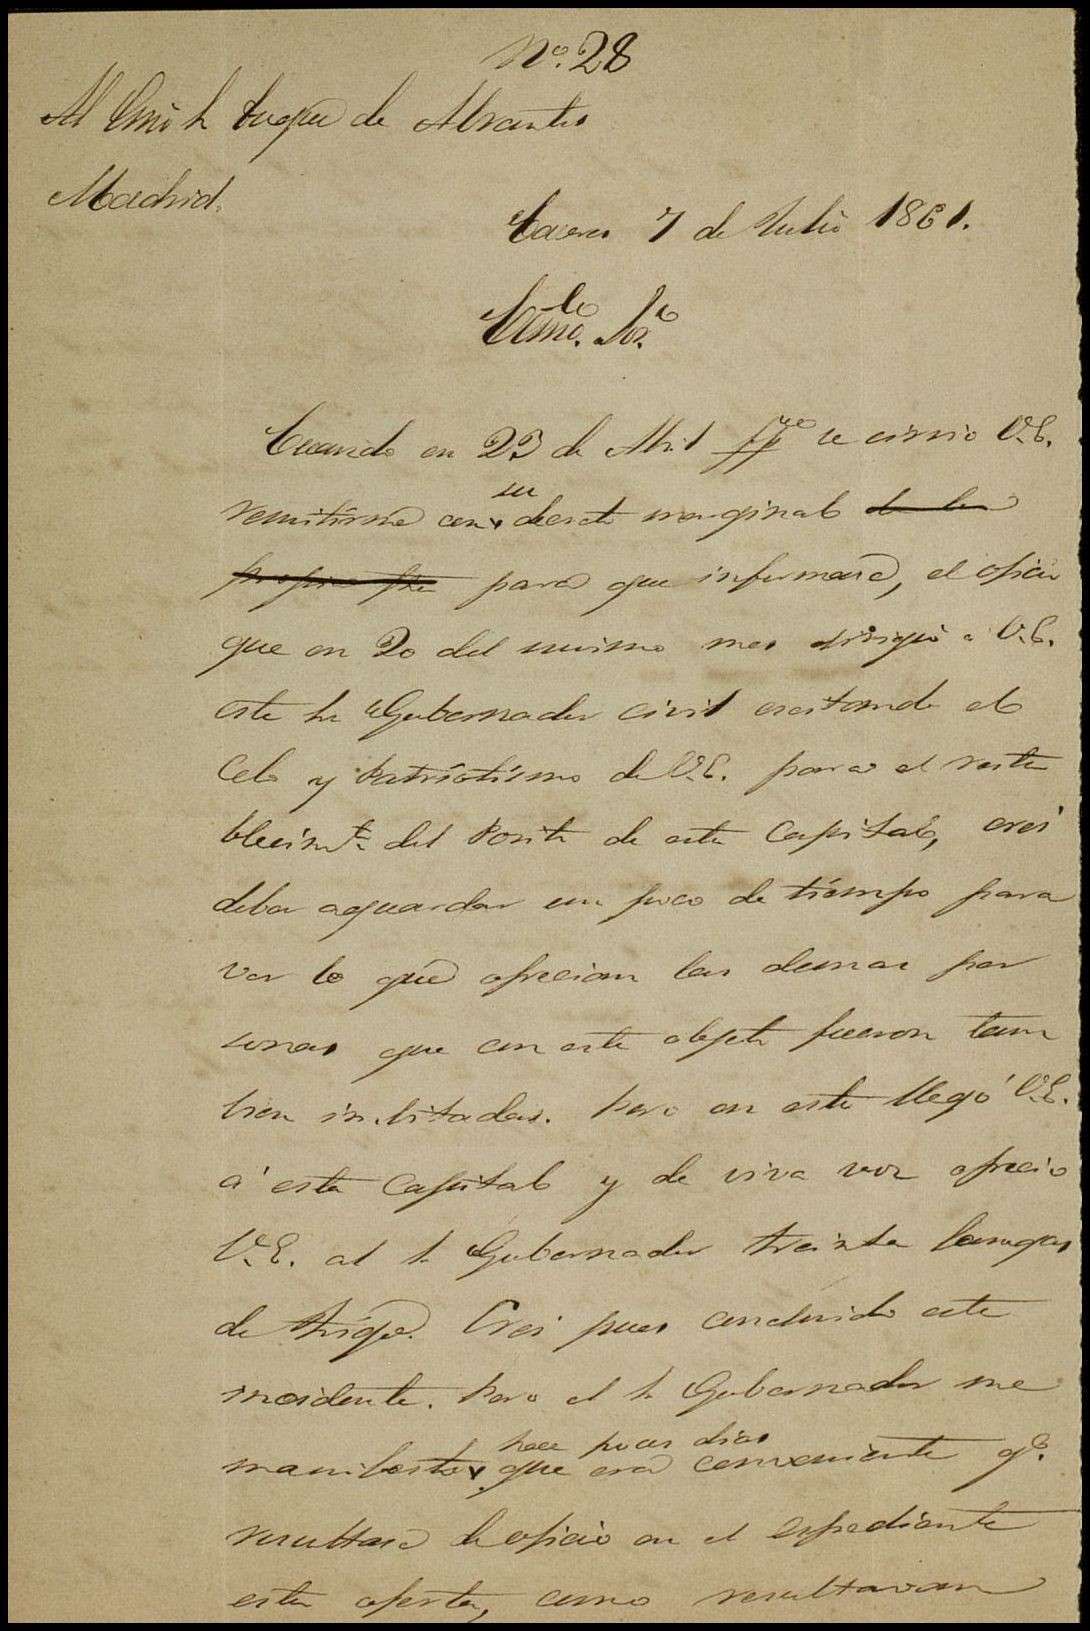 Nº. 28
Al Exmo Sr Duque de Abrantes
Madrid.
Caceres 7 de Julio 1861.
Exmo. Sor.
Cuando en 23 de Abril ppdo se sirvio V.E.
su
remitirme con decreto marginal
para que informara, el oficio
que en 20 del mismo mes dirigió a V.E.
este Sr Gobernador civil excitando el
Celo y Patriotismo de V.E. para el resta
blecimto del Posito de esta Capital, crei
deber aguardar un poco de tiempo para
ver lo que ofrecian las demas per
sonas que con este objeto fueron tam
bien invitadas. Pero en esto llegó V.E.
á esta Capital y de viva voz ofrecio
V.E. al Sr Gobernador treinta fanegas
de trigo. Crei pues concluido este
incidente. Pero el Sr Gobernador me
hace pocos dias
manifesto que era conveniente qe.
resultase de oficio en el espediente
esta oferta, como resultavan